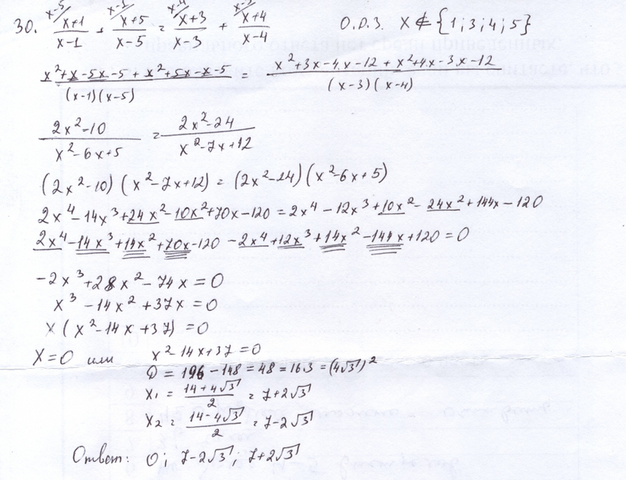 30. x-5/ x+1/x-1 + x-1/ x+5/x-5 = x-4/ x+3/x-3 + x-3/ x+4/x-4 О.Д.З. X ∉ {1; 3; 4; 5}
x²+x-5x-5+x²+5x-x-5/(x-1)(x-5) = x²+3x-4x-12+x²+4x-3x-12/(x-3)(x-4)
2x²-10/x²-6x+5 = 2x²-24/x²-7x+12
(2x²-10)(x²-7x+12) = (2x²-24)(x²-6x+5)
2x⁴-14x³+24x²-10x²+70x-120 = 2x⁴-12x³+10x²-24x²+144x-120
2x⁴-14x³+14x²+70x-120-2x⁴+12x³+14x²-144x+120=0
-2x³+28x²-74x=0
x³-14x²+37x=0
x(x²-14x+37)=0
X=0 или x²-14x+37=0
D=196-148=48=16·3=(4√3)²
X₁=14+4√3/2=7+2√3
X₂=14-4√3/2=7-2√3
Ответ: 0; 7-2√3; 7+2√3